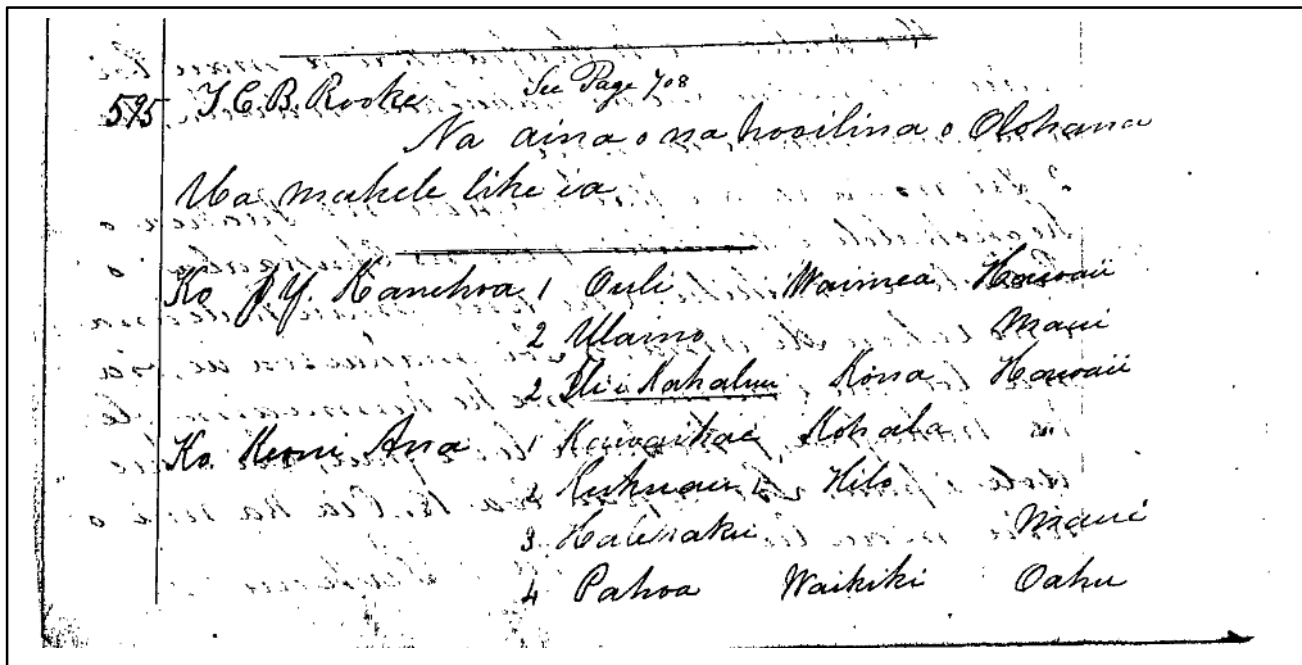 595 T. C. B. Rooke See Page 708
Na aina o na hooilina o Olohana
Ua mahele like ia
Ko J. Y. Kanehoa 1 Ouli Waimea Hawaii
2 Ulaino Maui
2 Ili i Kahaluu Kona Hawaii
Ko Keoni Ana 1 Kawaihae Kohala "
2 Hilo
3 Halehaku Maui
4 Pahoa Waikiki Oahu